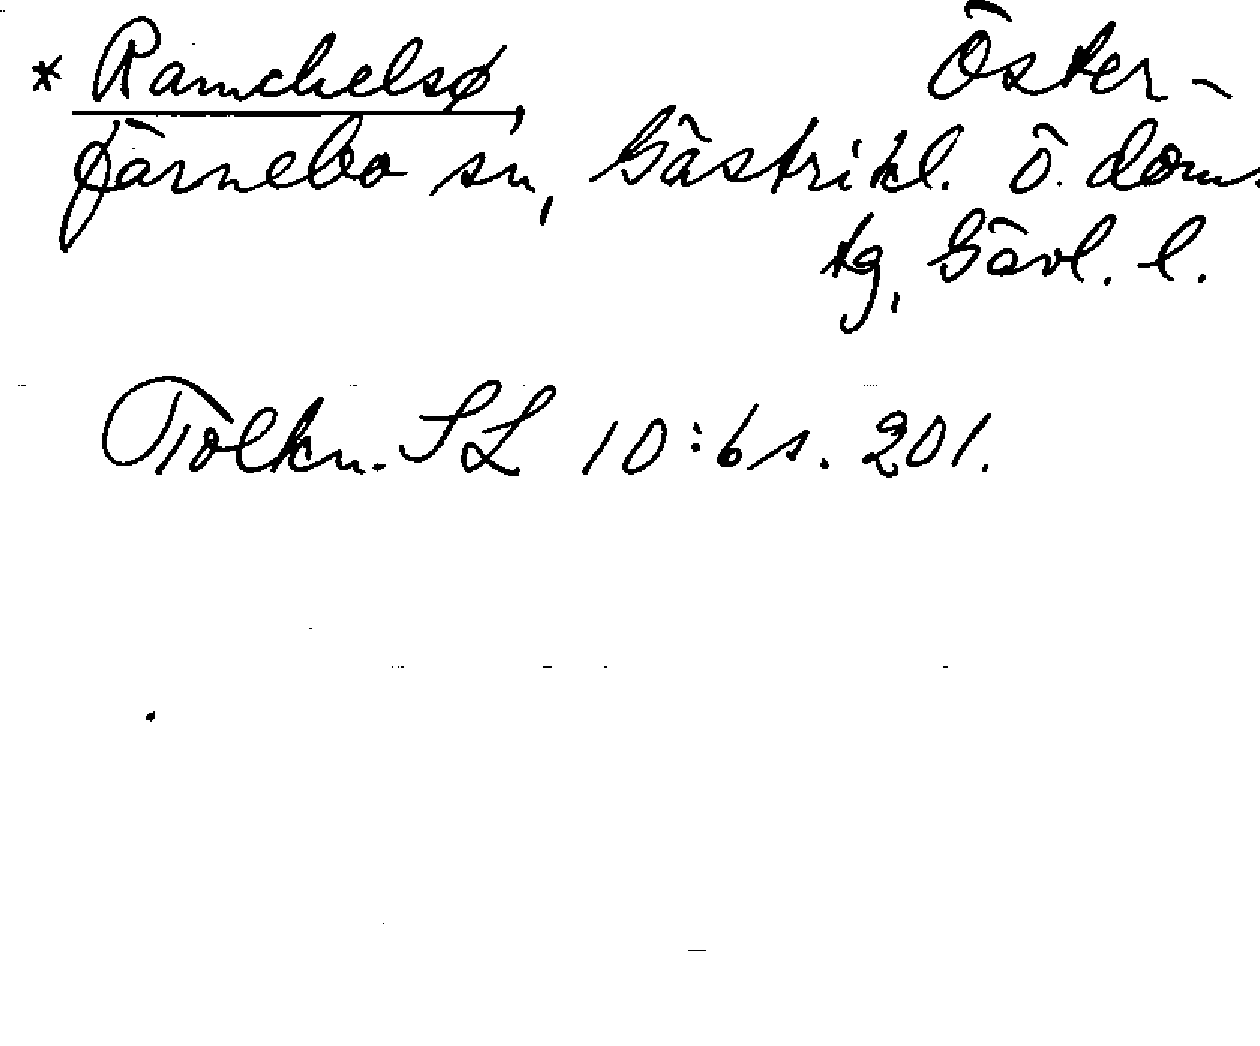 * Ramchelsø, Öster-
färnebo sn, Gästrikl. ö. doms
tg, Gävl. l.
Tolkn. SL 10:6 s. 201.